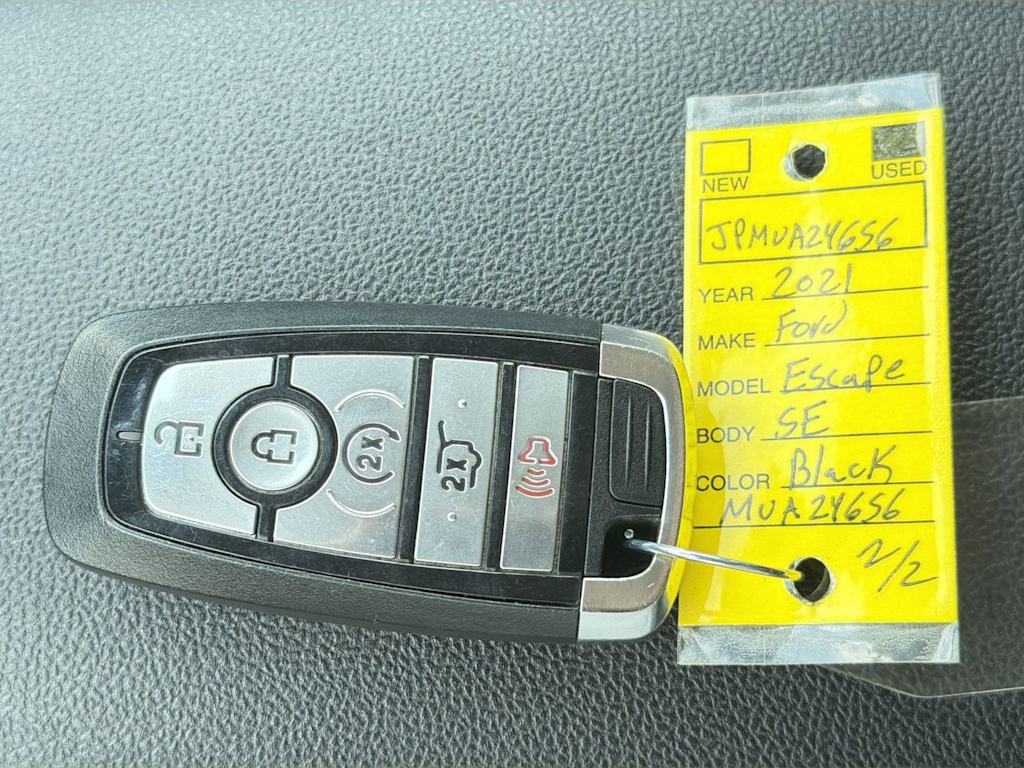 NEW
USED
JPMUA24656
YEAR 2021
MAKE Ford
MODEL Escape
BODY SE
COLOR Black
MUA24656
2/2
2x
2x